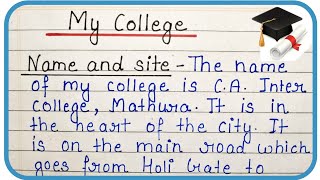 My College
Name and site - The name
of my college is C.A. Inter
college, Mathura. It is in
the heart of the city. It
is on the main road which
goes from Holi Gate to